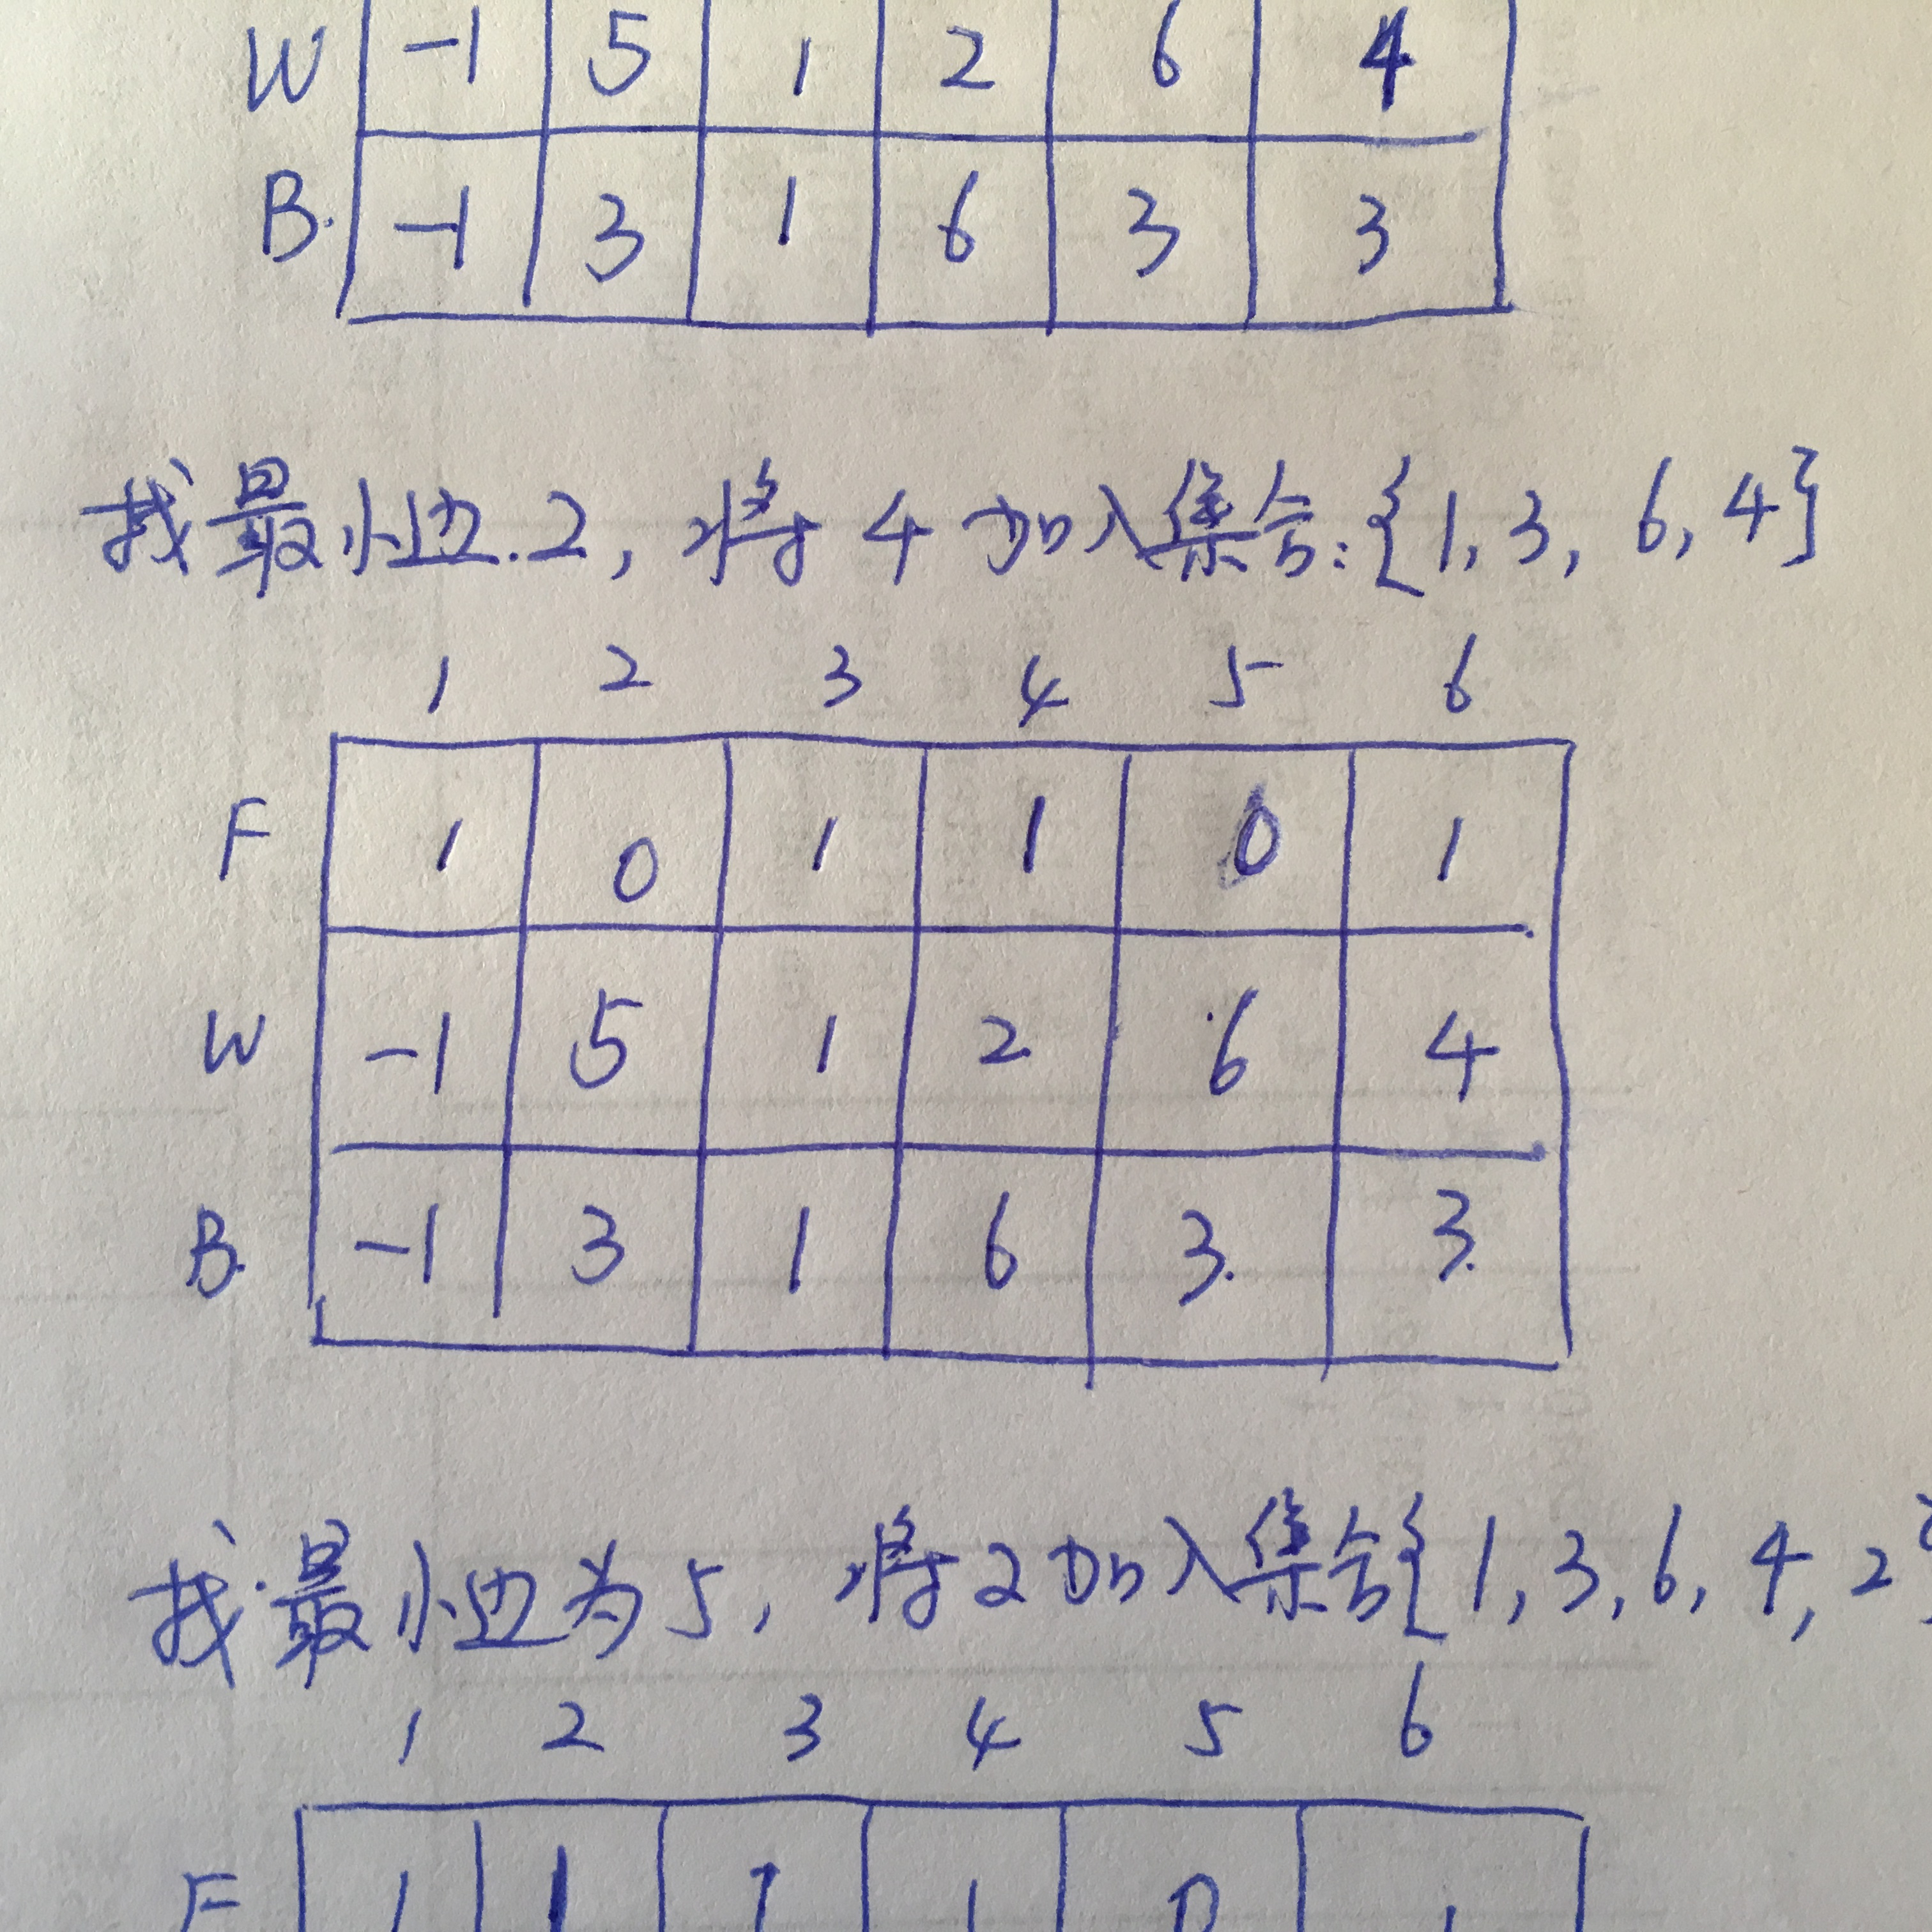 W -1 5 1 2 6 4
B. -1 3 1 6 3 3
找最小边.2, 将4加入集合:{1, 3, 6, 4}
1 2 3 4 5 6
F 1 0 1 1 0 1
W -1 5 1 2 6 4
B. -1 3 1 6 3. 3.
找最小边为5, 将2加入集合{1, 3, 6, 4, 2}
1 2 3 4 5 6
F 1 1 1 1 0